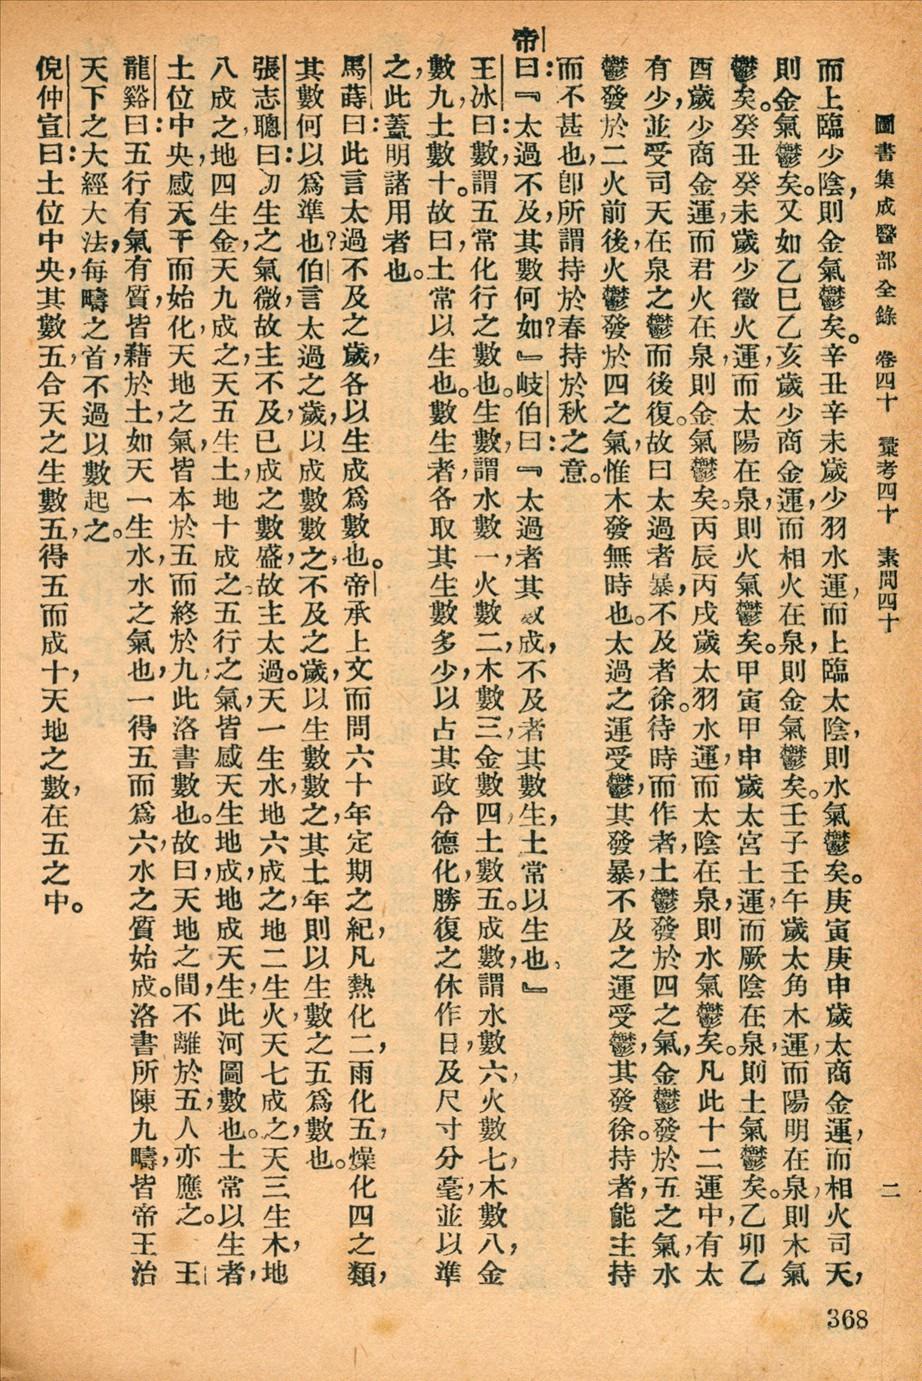 圖書集成醫部全錄　卷四十　彙考四十　素問四十　二
368
而上臨少陰，則金氣鬱矣。辛丑辛未歲少羽水運，而上臨太陰，則水氣鬱矣。庚寅庚申歲太商金運，而相火司天，
則金氣鬱矣。又如乙巳乙亥歲少商金運，而相火在泉，則金氣鬱矣。壬子壬午歲太角木運，而陽明在泉，則木氣
鬱矣。癸丑癸未歲少徵火運，而太陽在泉，則火氣鬱矣。甲寅甲申歲太宮土運，而厥陰在泉，則土氣鬱矣。乙卯乙
酉歲少商金運，而君火在泉，則金氣鬱矣。丙辰丙戌歲太羽水運，而太陰在泉，則水氣鬱矣。凡此十二運中，有太
有少，並受司天在泉之鬱而後復。故曰太過者暴，不及者徐。待時而作者，土鬱發於四之氣，金鬱發於五之氣，水
鬱發於二火前後，火鬱發於四之氣，惟木發無時也。太過之運受鬱，其發暴，不及之運受鬱，其發徐。持者，能主持
而不甚也，卽所謂持於春持於秋之意。
帝曰：『太過不及，其數何如？』岐伯曰：『太過者其數成，不及者其數生，土常以生也。』
王冰曰：數，謂五常化行之數也。生數，謂水數一，火數二，木數三，金數四，土數五。成數，謂水數六，火數七，木數八，金
數九，土數十。故曰，土常以生也。數生者，各取其生數多少，以占其政令德化，勝復之休作日，及尺寸分毫，並以準
之，此蓋明諸用者也。
馬蒔曰：此言太過不及之歲，各以生成爲數也。帝承上文而問六十年定期之紀，凡熱化二，雨化五，燥化四之類，
其數何以爲準也？伯言太過之歲，以成數數之，不及之歲，以生數數之，其土年則以生數之五爲數也。
張志聰曰：初生之氣微，故主不及，已成之數盛，故主太過。天一生水，地六成之，地二生火，天七成之，天三生木，地
八成之，地四生金，天九成之，天五生土，地十成之，五行之氣，皆感天生地成，地成天生，此河圖數也。土常以生者，
土位中央，感天干而始化，天地之氣，皆本於五而終於九，此洛書數也。故曰，天地之間，不離於五，人亦應之。　王
龍谿曰：五行有氣有質，皆藉於土，如天一生水，水之氣也，一得五而爲六，水之質始成。洛書所陳九疇，皆帝王治
天下之大經大法，每疇之首，不過以數起之。
倪仲宣曰：土位中央，其數五，合天之生數五，得五而成十，天地之數，在五之中。